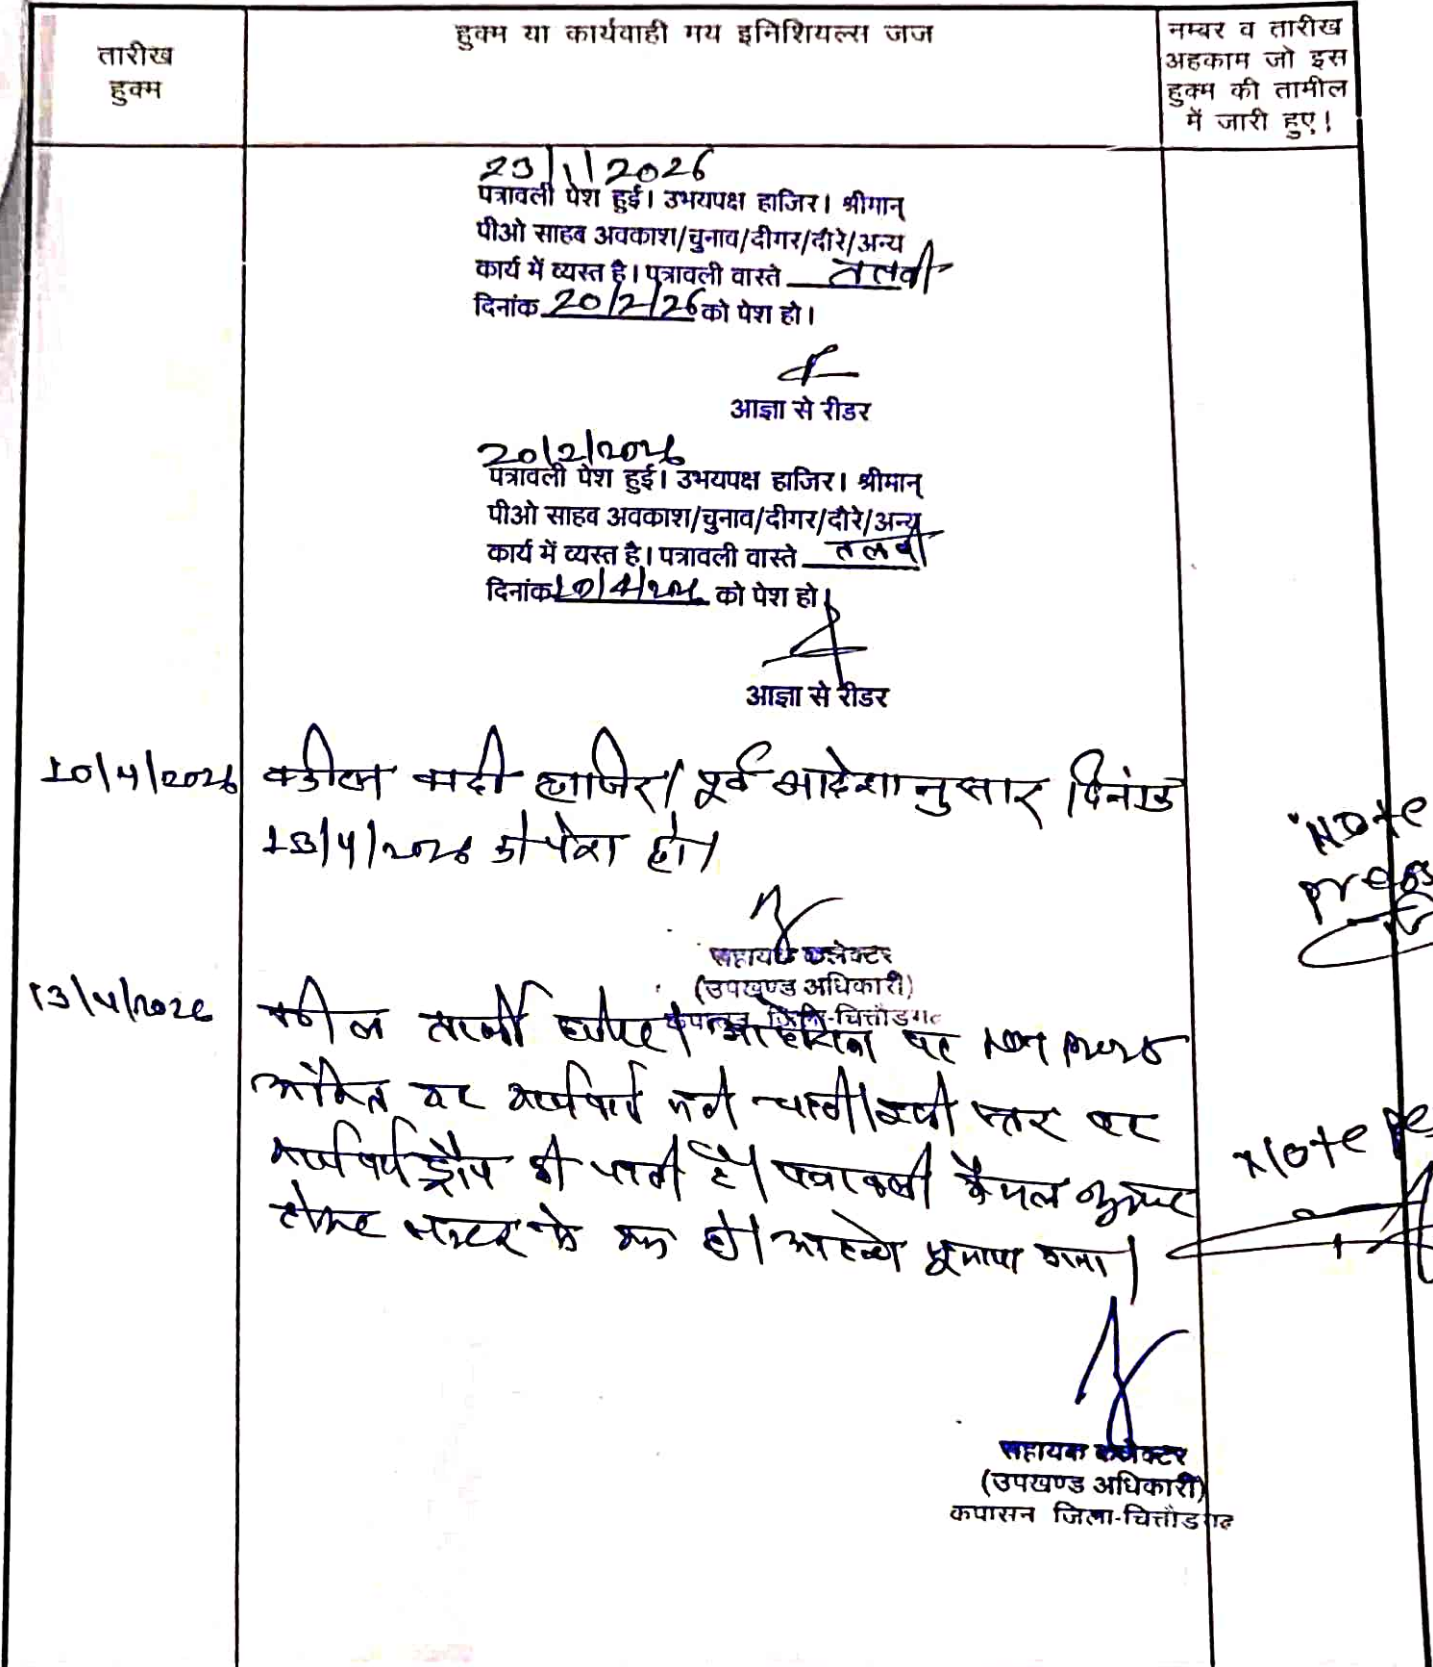 तारीख
हुक्म
हुक्म या कार्यवाही मय इनिशियल्स जज
नम्बर व तारीख
अहकाम जो इस
हुक्म की तामील
में जारी हुए!
23/1/2026
पत्रावली पेश हुई। उभयपक्ष हाजिर। श्रीमान्
पीओ साहब अवकाश/चुनाव/दीगर/दौरे/अन्य
कार्य में व्यस्त है। पत्रावली वास्ते तलबी
दिनांक 20/2/26 को पेश हो।
आज्ञा से रीडर
20/2/2026
पत्रावली पेश हुई। उभयपक्ष हाजिर। श्रीमान्
पीओ साहब अवकाश/चुनाव/दीगर/दौरे/अन्य
कार्य में व्यस्त है। पत्रावली वास्ते तलबी
दिनांक 10/4/2026 को पेश हो।
आज्ञा से रीडर
10/4/2026 वकील वादी हाजिर। पूर्व आदेशानुसार दिनांक
13/4/2026 को पेश हो।
Note
press
सहायक कलेक्टर
(उपखण्ड अधिकारी)
कपासन जिला-चित्तौडगढ
13/4/2026 वकील हाजिर। पर Not press
पर स्तर पर
ड्रॉप की जाती है। पत्रावली फैसल शुमार
होकर नम्बर से कम हो। आदेश सुनाया गया।
Note pre
सहायक कलेक्टर
(उपखण्ड अधिकारी)
कपासन जिला-चित्तौडगढ